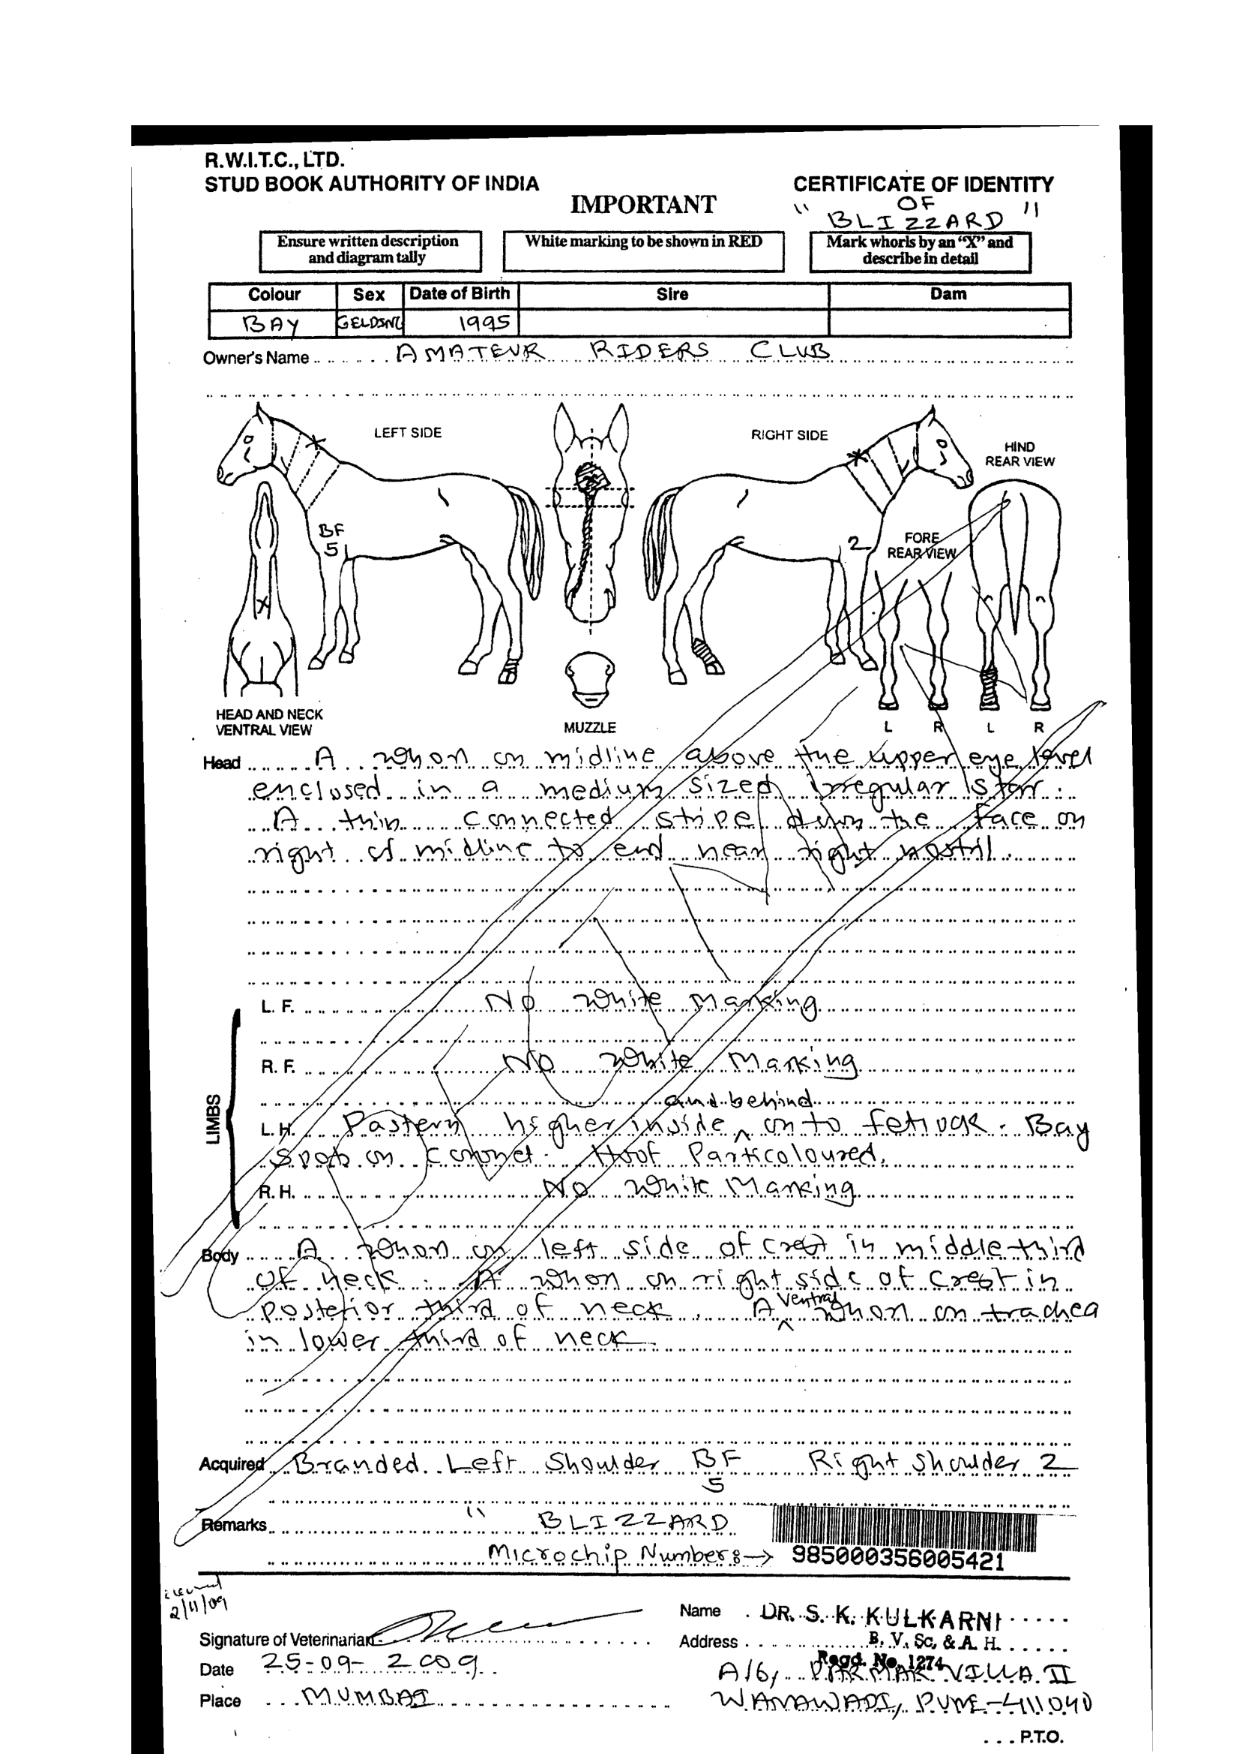 R.W.I.T.C., LTD.
STUD BOOK AUTHORITY OF INDIA
CERTIFICATE OF IDENTITY
OF
IMPORTANT
" BLIZZARD "
Ensure written description and diagram tally
White marking to be shown in RED
Mark whorls by an "X" and describe in detail
Colour Sex Date of Birth Sire Dam
BAY GELDING 1995
Owner's Name AMATEUR RIDERS CLUB
LEFT SIDE
RIGHT SIDE
HIND REAR VIEW
BF
5
2
FORE REAR VIEW
HEAD AND NECK VENTRAL VIEW
MUZZLE
L R L R
Head A whorl on midline above the upper eye level
enclosed in a medium sized irregular star.
A thin connected stripe down the face on
right of midline to end near right nostril.
LIMBS
L. F. No white Marking
R. F. No white Marking
and behind
L.H. Pastern higher inside ^ on to fetlock. Bay
Spots on coronet. Hoof Particoloured.
R.H. No white Marking
Body A whorl on left side of crest in middle third
of neck. A whorl on right side of crest in
posterior third of neck. A ^ ventral whorl on trachea
in lower third of neck
Acquired Branded Left Shoulder BF Right shoulder 2
5
Remarks " BLIZZARD
Microchip Numbers→ 985000356005421
issued
2/11/09
Signature of Veterinarian
Name DR. S. K. KULKARNI
Address B. V. Sc. & A. H.
Regd. No. 1274
Date 25-09-2009
A/6, PARMAR VILLA II
Place MUMBAI
WANAWADI, PUNE-411040
...P.T.O.